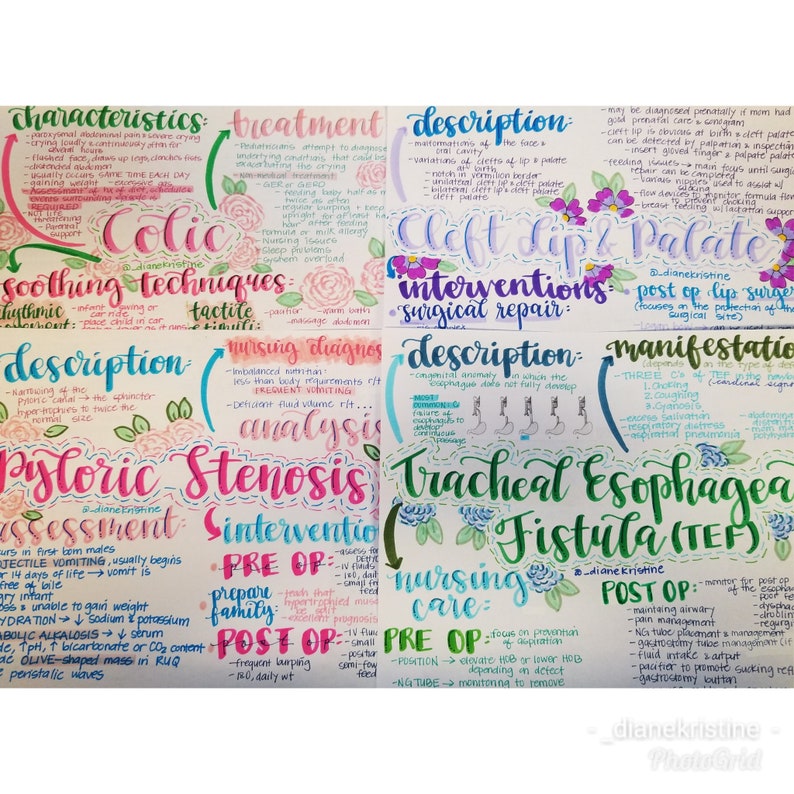 characteristics:
- paroxysmal abdominal pain & severe crying
- crying loudly & continuously often for
several hours
- flushed face, draws up legs, clenches fists
- distended abdomen
- usually occurs SAME TIME EACH DAY
gaining weight - excessive gas
- Assessment of hx of diet/schedules
events surrounding episode is
REQUIRED
NOT life
threatening
Parental
support
treatment
- Pediatricians attempt to diagnose
underlying conditions, that could be
exacerbating the crying
Non-medical treatment
- GER or GERD
- feeding baby half as m
twice as often
regular burping & keep
upright for at least half
hour after feeding
- formula or milk allergy
- Nursing issues
- Sleep problems
- System overload
Colic
@_dianekristine
soothing techniques:
rhythmic
- infant swing or
car ride
- place child in car
tactile
stimuli:
- pacifier - warm bath
- massage abdomen
description:
- malformations of the face &
oral cavity
- variations of clefts of lip & palate
at birth
- notch in vermilion border
- unilateral cleft lip & cleft palate
- bilateral cleft lip & cleft palate
- cleft palate
- may be diagnosed prenatally if mom had
good prenatal care & sonogram
- cleft lip is obvious at birth & cleft palate
can be detected by palpation & inspection
insert gloved finger & palpate palate
- feeding issues → main focus until surgical
repair can be complete
- various nipples used to assist w/
sucking
- flow devices to monitor formula flow
to prevent choking
- breast feeding w/ lactation support
Cleft Lip & Palate
@_dianekristine
interventions:
surgical repair:
post op lip surge
(focuses on the protection of the
surgical site)
description:
- Narrowing of the
pyloric canal → the sphincter
hypertrophies to twice the
normal size
nursing diagnos
- Imbalanced nutrition:
less than body requirements r/t
FREQUENT VOMITING
- Deficient fluid volume r/t....
analysis
Pyloric Stenosis
@_dianekristine
assessment:
curs in first born males
OJECTILE VOMITING, usually begins
r 14 days of life → vomit is
free of bile
gry infant
loss & unable to gain weight
HYDRATION → ↓ Sodium & potassium
ABOLIC ALKALOSIS → ↓ serum
de, ↑pH, ↑ bicarbonate or CO2 content
OLIVE-shaped mass in RUQ
peristalic waves
interventio
PRE OP:
- assess for
- IV fluids
- I&O, dail
- small fr
feed
prepare
family:
- teach that
hypertrophied muscle
be split
- excellent prognosis
POST OP:
- IV Fluid
- small
- position
semi-fow
feed
- frequent burping
- I&O, daily wt
description:
- congenital anomaly in which the
esophagus does not fully develop
- MOST
COMMON:
failure of
esophagus to
develop
continuous
passage
manifestatio
(depends on the type of defe
- THREE C's OF TEF in the newborn
(cardinal signs)
1. Choking
2. Coughing
3. Cyanosis
- excess salivation
- respiratory distress
- aspiration pneumonia
- abdominal
Tracheal Esophagea
Fistula (TEF)
@_dianekristine
nursing
care:
PRE OP:
- focus on prevention
of aspiration
- POSITION → elevate HOB or lower HOB
depending on defect
- NG TUBE → monitoring to remove
POST OP:
- monitor for post op
of the esophag
- poor fe
- dyspha
- drooling
- regurgi
- maintaing airway
- pain management
- NG tube placement & management
- gastrostomy tube management (if
- fluid intake & output
- pacifier to promote sucking refl
- gastrostomy button
- _dianekristine -
PhotoGrid